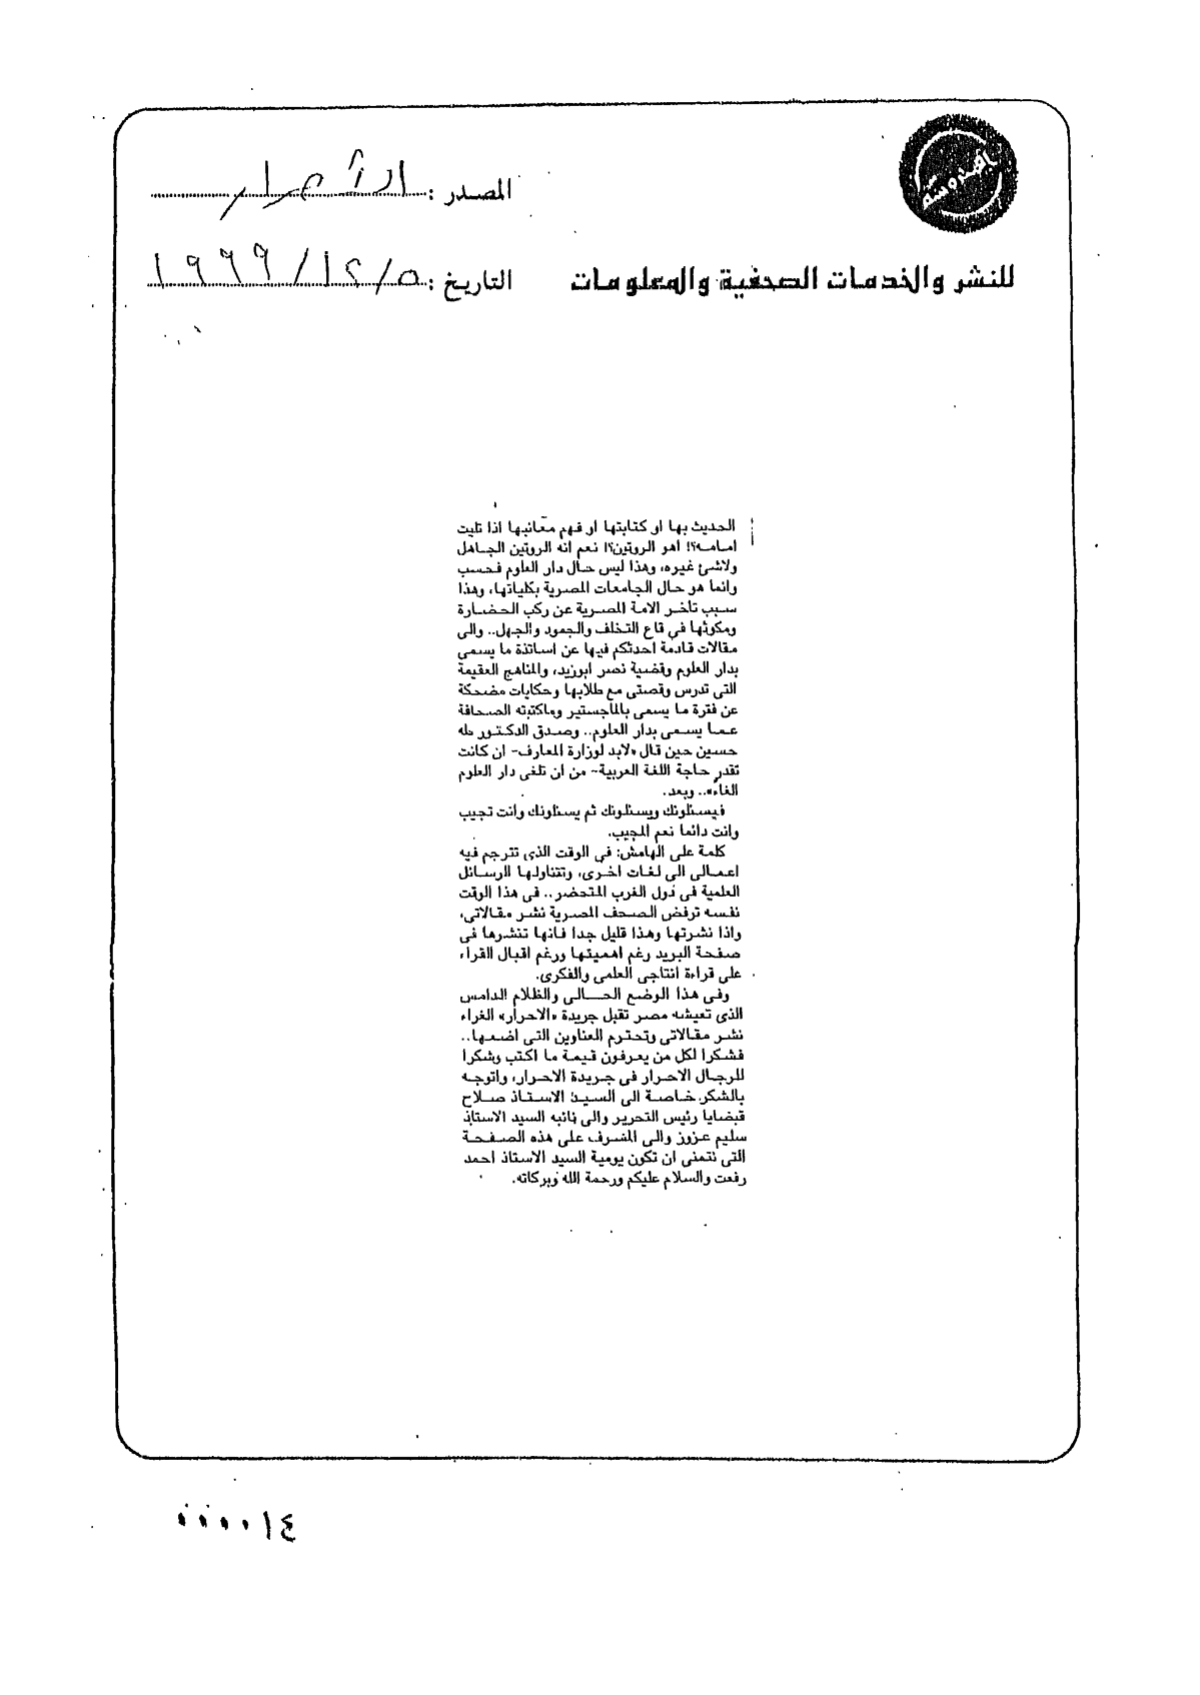 المصدر : الأحرار
للنشر والخدمات الصحفية والمعلومات
التاريخ : ٥/١٢/١٩٩٩
الحديث بها او كتابتها او فهم معانيها اذا تليت
امامه؟! اهو الروتين؟! نعم انه الروتين الجاهل
ولاشئ غيره، وهذا ليس حال دار العلوم فحسب
وانما هو حال الجامعات المصرية بكلياتها، وهذا
سبب تأخر الامة المصرية عن ركب الحضارة
ومكوثها في قاع التخلف والجمود والجهل.. والى
مقالات قادمة احدثكم فيها عن اساتذة ما يسمى
بدار العلوم وقضية نصر ابوزيد، والمناهج العقيمة
التى تدرس وقصتى مع طلابها وحكايات مضحكة
عن فترة ما يسمى بالماجستير وماكتبته الصحافة
عما يسمى بدار العلوم.. وصدق الدكتور طه
حسين حين قال «لابد لوزارة المعارف- ان كانت
تقدر حاجة اللغة العربية- من ان تلغى دار العلوم
الغاء».. وبعد.
فيسئلونك ويسئلونك ثم يسئلونك وانت تجيب
وانت دائما نعم المجيب.
كلمة على الهامش: فى الوقت الذى تترجم فيه
اعمالى الى لغات اخرى، وتتناولها الرسائل
العلمية فى دول الغرب المتحضر.. فى هذا الوقت
نفسه ترفض الصحف المصرية نشر مقالاتى،
واذا نشرتها وهذا قليل جدا فانها تنشرها فى
صفحة البريد رغم اهميتها ورغم اقبال القراء
على قراءة انتاجى العلمى والفكرى.
وفى هذا الوضع الحالى والظلام الدامس
الذى تعيشه مصر تقبل جريدة «الاحرار» الغراء
نشر مقالاتى وتحترم العناوين التى اضعها..
فشكرا لكل من يعرفون قيمة ما اكتب وشكرا
للرجال الاحرار فى جريدة الاحرار، واتوجه
بالشكر خاصة الى السيد الاستاذ صلاح
قبضايا رئيس التحرير والى نائبه السيد الاستاذ
سليم عزوز والى المشرف على هذه الصفحة
التى نتمنى ان تكون يومية السيد الاستاذ احمد
رفعت والسلام عليكم ورحمة الله وبركاته.
٠٠٠٠١٤